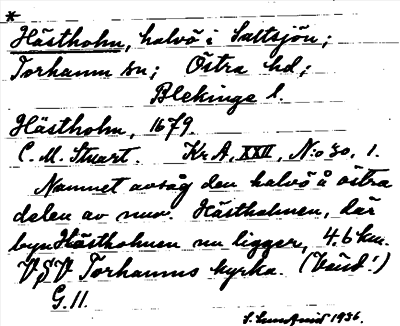 *
Hästholm, halvö i Saltsjön;
Torhamn sn; Östra hd;
Blekinge l.
Hästholm, 1679.
C. M. Stuart. Kr A, XXII, N:o 30, 1.
Namnet avsåg den halvö å östra
delen av nuv. Hästholmen, där
byn Hästholmen nu ligger, 4.6 km.
VSV Torhamns kyrka. (Vänd!)
G. 11.
1936.